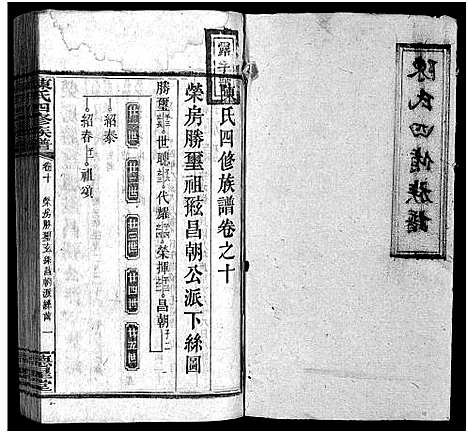 陳氏四修族譜
陳氏四修族譜卷之十
榮房勝璽祖玹昌朝公派下絲圖
勝璽 世聰 代耀 榮揮 昌朝 子二
廿二世 廿三世 廿四世 廿五世
紹泰
紹春 祖頌
陳氏四修族譜 卷十 榮房勝璽玄孫昌朝派絲圖 一